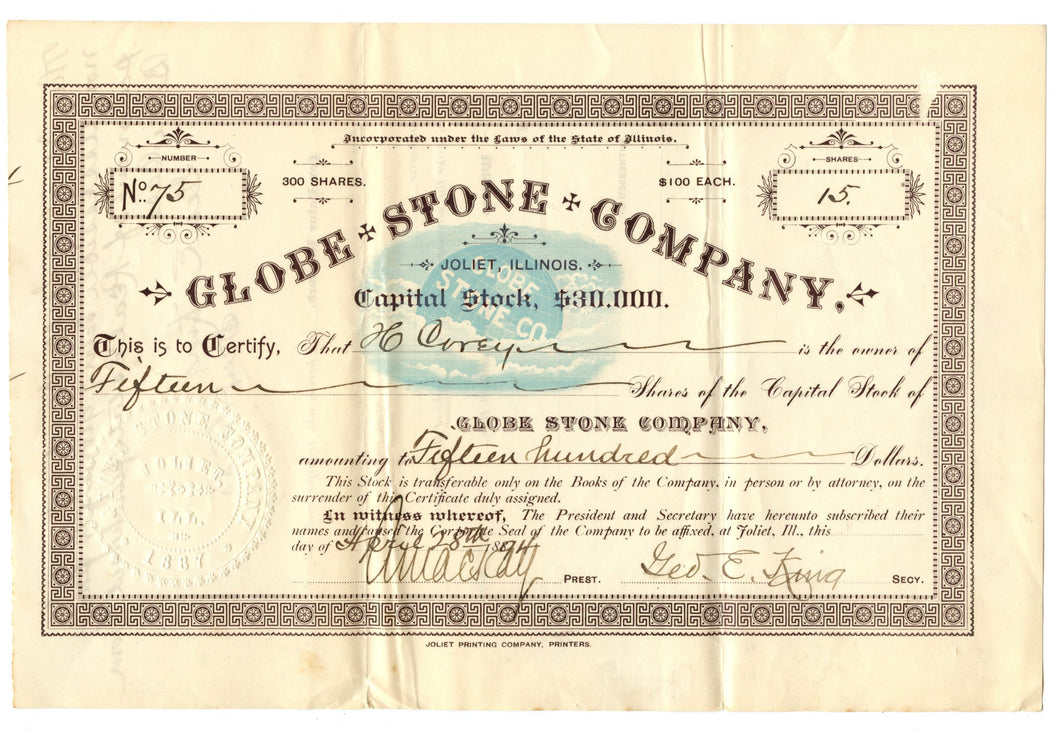 Incorporated under the Laws of the State of Illinois.
NUMBER
No. 75
300 SHARES.
$100 EACH.
SHARES
15.
GLOBE STONE COMPANY.
JOLIET, ILLINOIS.
GLOBE
STONE CO.
Capital Stock, $30.000.
This is to Certify, That H Corey is the owner of
Fifteen Shares of the Capital Stock of
GLOBE STONE COMPANY,
amounting to Fifteen hundred Dollars.
This Stock is transferable only on the Books of the Company, in person or by attorney, on the
surrender of this Certificate duly assigned.
In witness whereof, The President and Secretary have hereunto subscribed their
names and caused the Corporate Seal of the Company to be affixed, at Joliet, Ill., this
day of April 28th 1894
PREST. Geo. E. King SECY.
STONE COMPANY
JOLIET,
ILL.
1887
JOLIET PRINTING COMPANY, PRINTERS.